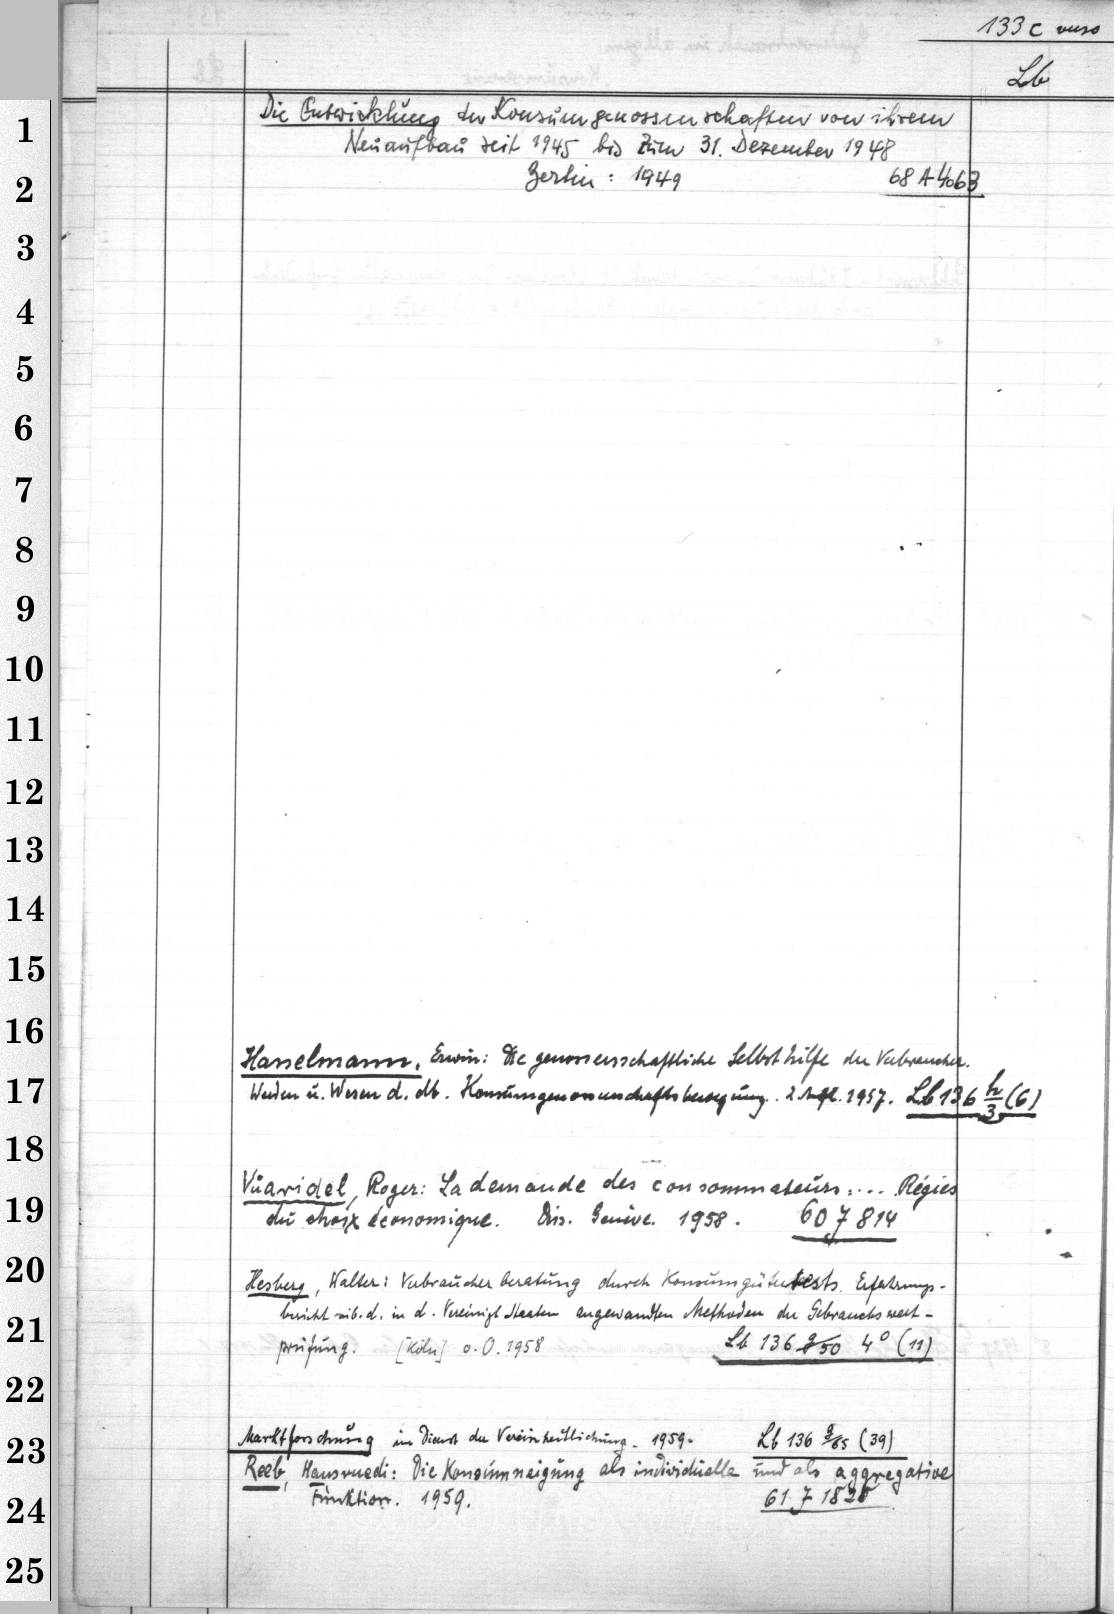 133c verso
Lb
1
Die Entwicklung der Konsumgenossenschaften von ihrem
Neuaufbau seit 1945 bis zum 31. Dezember 1948
2
Berlin: 1949 68 A 4063
3
4
5
6
7
8
9
10
11
12
13
14
15
16
Hasselmann, Erwin: Die genossenschaftliche Selbsthilfe der Verbraucher.
17
Werden u. Wesen d. dt. Konsumgenossenschaftsbewegung. 2. Aufl. 1957. Lb 136 h/3 (6)
18
Vuaridel, Roger: La demande des consommateurs: ... Régies
19
du choix économique. Dis. Genève. 1958. 60 7 814
20
Hesberg, Walter: Verbraucherberatung durch Konsumgütertests. Erfahrungs-
bericht üb. d. in d. Vereinigt. Staaten angewandten Methoden der Gebrauchswert-
21
prüfung. [Köln] o. O. 1958 Lb 136 g/50 4° (11)
22
Marktforschung im Dienst der Vereinheitlichung. 1959. Lb 136 g/65 (39)
23
Reeb, Hansruedi: Die Konsumneigung als individuelle und als aggregative
Funktion. 1959. 61 7 1828
24
25